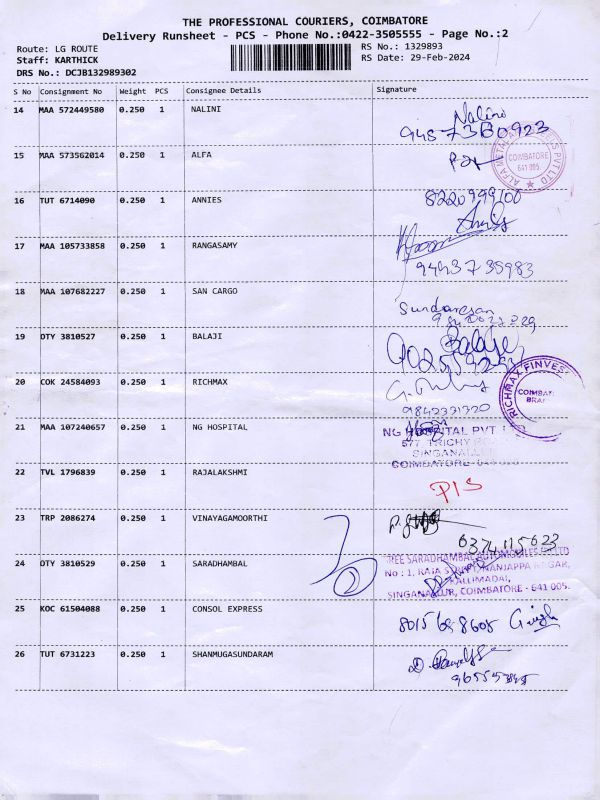 THE PROFESSIONAL COURIERS, COIMBATORE
Delivery Runsheet - PCS - Phone No.:0422-3505555 - Page No.:2
Route: LG ROUTE RS No.: 1329893
Staff: KARTHICK RS Date: 29-Feb-2024
DRS No.: DCJB132989302
S No Consignment No Weight PCS Consignee Details Signature
14 MAA 572449580 0.250 1 NALINI Nalini
15 MAA 573562014 0.250 1 ALFA
COIMBATORE
641 005
16 TUT 6714090 0.250 1 ANNIES
17 MAA 105733858 0.250 1 RANGASAMY
18 MAA 107682227 0.250 1 SAN CARGO Sundaresan
19 DTY 3810527 0.250 1 BALAJI Balaje
20 COK 24584093 0.250 1 RICHMAX
RICHMAX FINVES
21 MAA 107240657 0.250 1 NG HOSPITAL NG HOSPITAL PVT
677 TRICHY
SINGANALL
COIMBATORE
22 TVL 1796839 0.250 1 RAJALAKSHMI P/S
23 TRP 2086274 0.250 1 VINAYAGAMOORTHI
6374115623
24 DTY 3810529 0.250 1 SARADHAMBAL
SREE SARADHAMBAL AUTOMOBILES
No : 1, RAJA NANJAPPA NAGAR,
KALLIMADAI,
SINGANALLUR, COIMBATORE - 641 005.
25 KOC 61504088 0.250 1 CONSOL EXPRESS
26 TUT 6731223 0.250 1 SHANMUGASUNDARAM